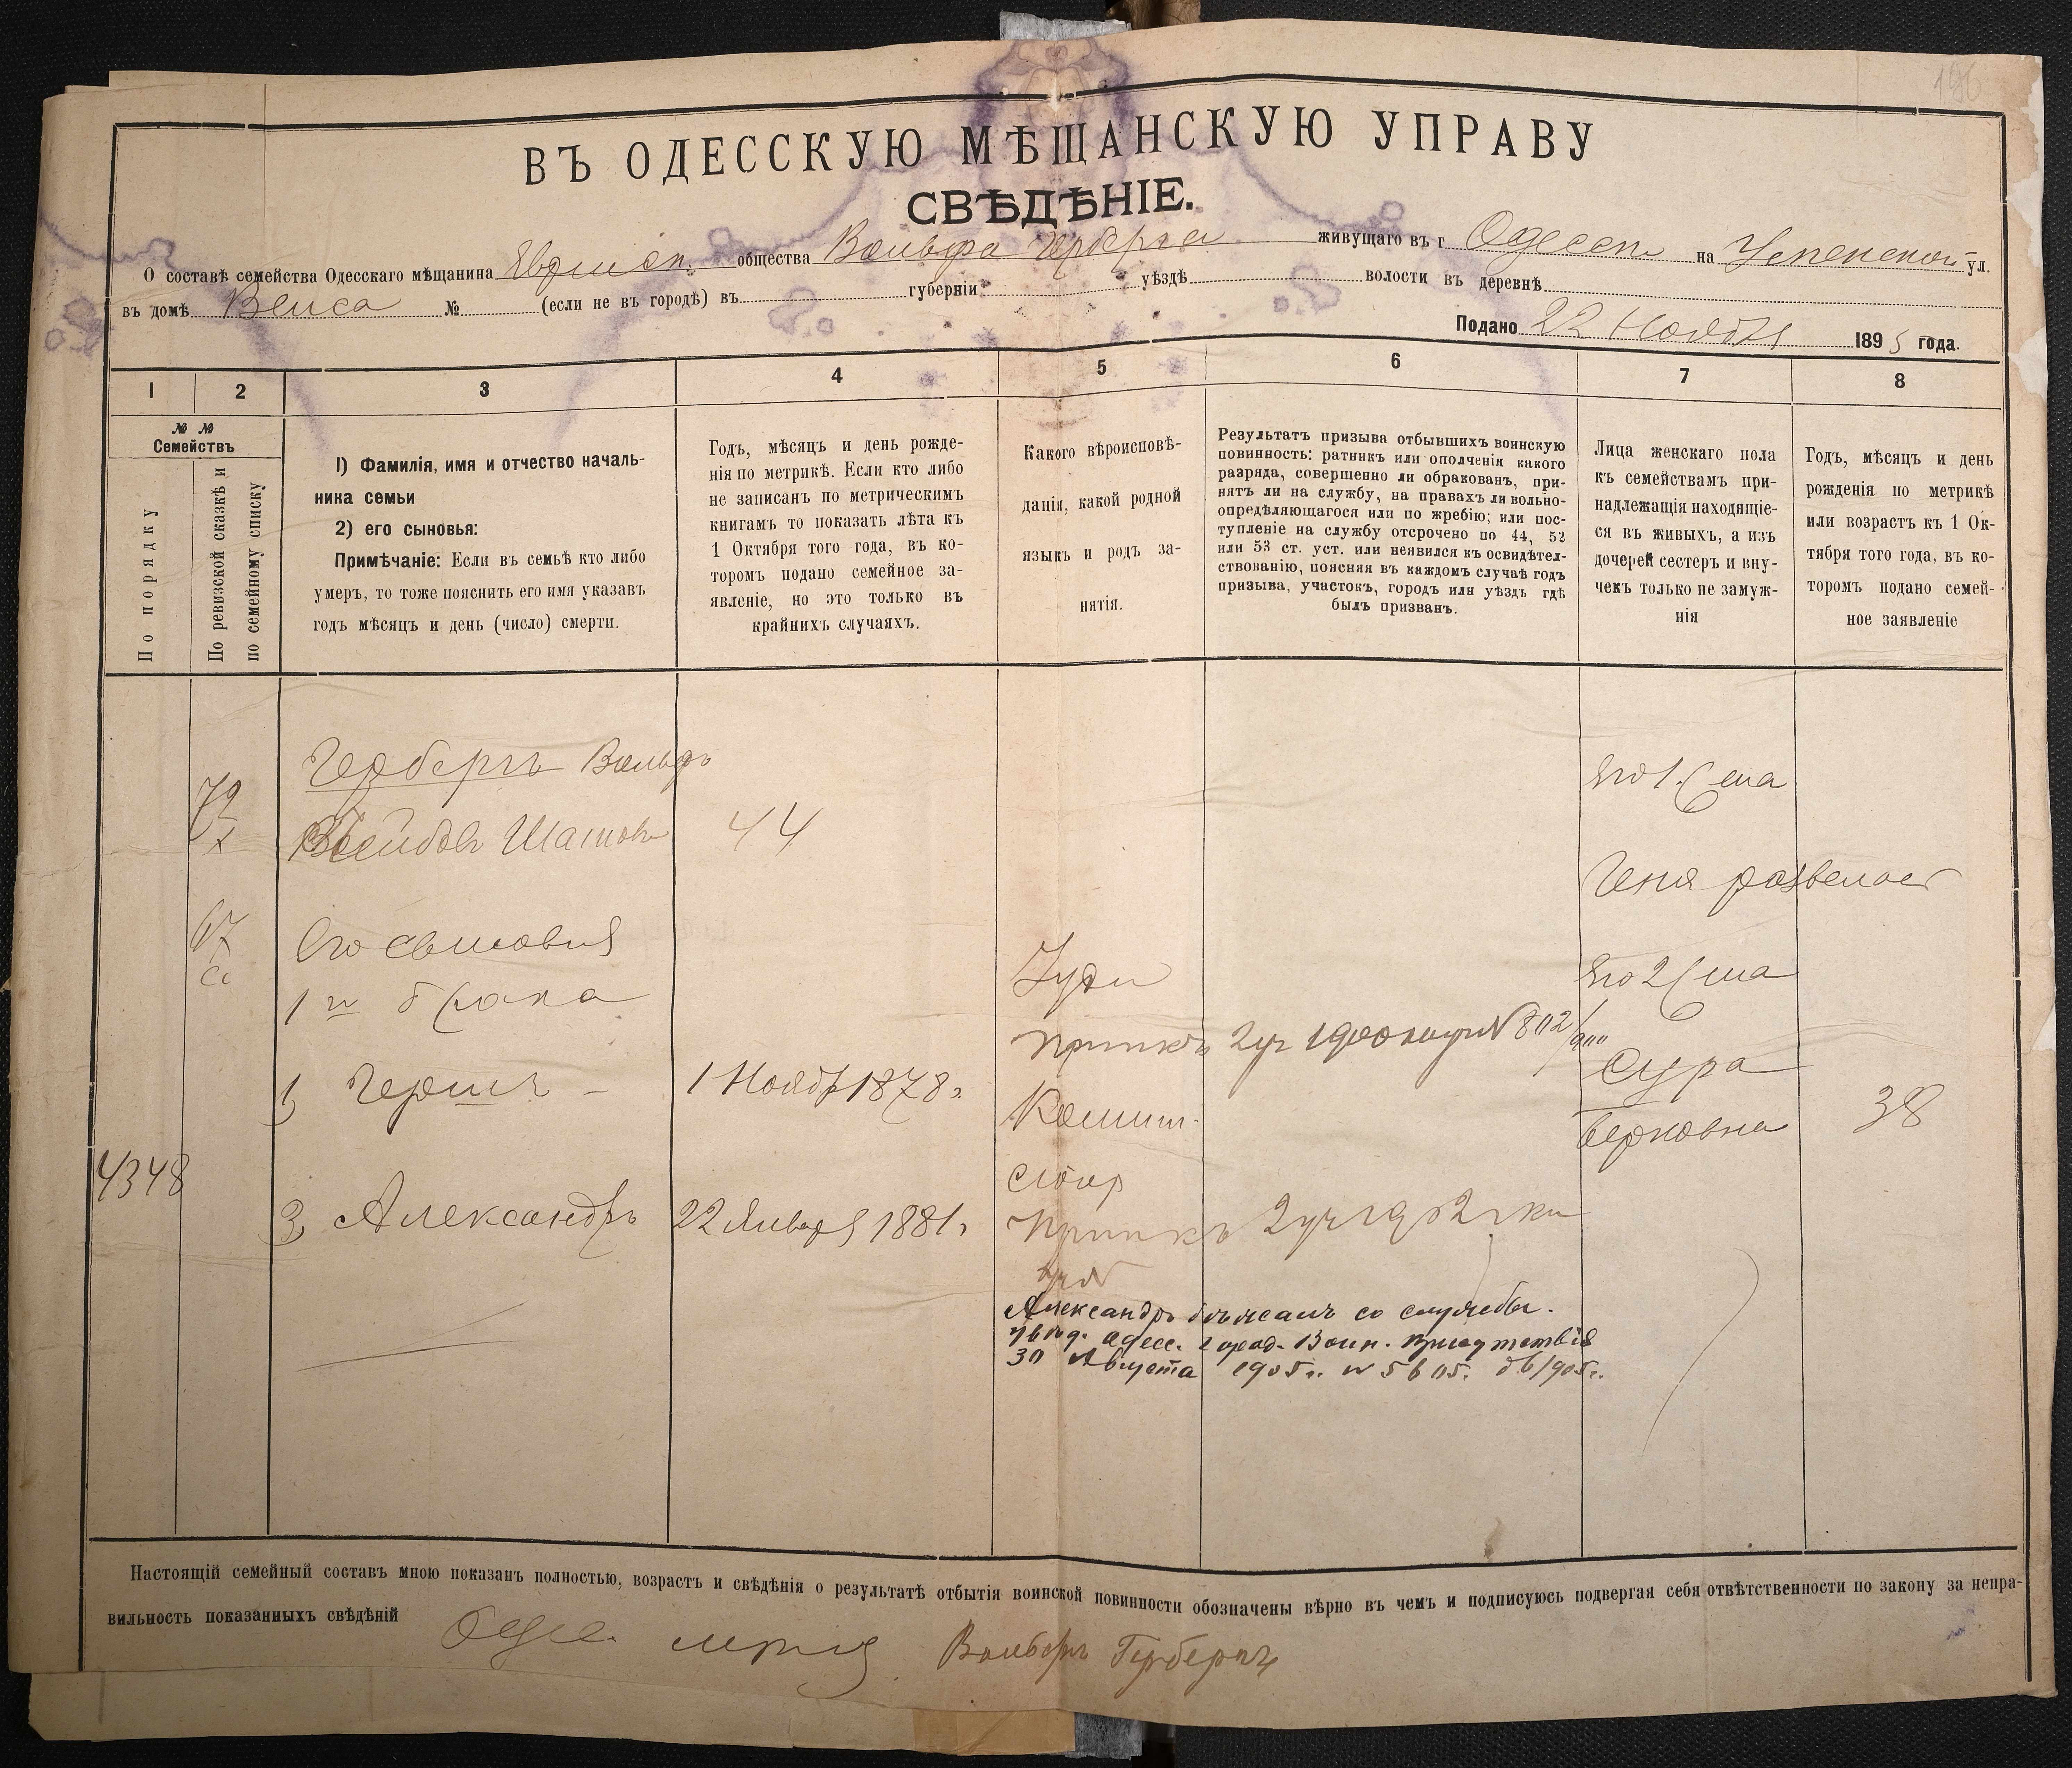 196
ВЪ ОДЕССКУЮ МѢЩАНСКУЮ УПРАВУ
СВѢДѢНІЕ.
О составѣ семейства Одесскаго мѣщанина Еврейск. общества Вольфа Герберга живущаго въ г Одессѣ на Успенской ул.
въ домѣ Вейса № (если не въ городѣ) въ губерніи уѣздѣ волости въ деревнѣ
Подано 22 Ноября 1895 года.
1 2 3 4 5 6 7 8
№ № Семействъ
По порядку
По ревизской сказкѣ и по семейному списку
1) Фамилія, имя и отчество началь-
ника семьи
2) его сыновья:
Примѣчаніе: Если въ семьѣ кто либо
умеръ, то тоже пояснить его имя указавъ
годъ мѣсяцъ и день (число) смерти.
Годъ, мѣсяцъ и день рожде-
нія по метрикѣ. Если кто либо
не записанъ по метрическимъ
книгамъ то показать лѣта къ
1 Октября того года, въ ко-
торомъ подано семейное за-
явленіе, но это только въ
крайнихъ случаяхъ.
Какого вѣроисповѣ-
данія, какой родной
языкъ и родъ за-
нятія.
Результатъ призыва отбывшихъ воинскую
повинность: ратникъ или ополченія какого
разряда, совершенно ли обракованъ, при-
нятъ ли на службу, на правахъ ли вольно-
опредѣляющагося или по жребію; или пос-
тупленіе на службу отсрочено по 44, 52
или 53 ст. уст. или неявился къ освидѣтел-
ствованію, поясняя въ каждомъ случаѣ годъ
призыва, участокъ, городъ или уѣздъ гдѣ
былъ призванъ.
Лица женскаго пола
къ семействамъ при-
надлежащія находящіе-
ся въ живыхъ, а изъ
дочерей сестеръ и вну-
чекъ только не замуж-
нія
Годъ, мѣсяцъ и день
рожденія по метрикѣ
или возрастъ къ 1 Ок-
тября того года, въ ко-
торомъ подано семей-
ное заявленіе
Гербергъ Вольфъ
44
Его 1 жена
Геня
Его сыновья
1го брака
Іуди
Его 2 жена
Сура
Берковна
38
1) Гершъ - 1 Ноябр 1878 г.
4348
Александръ 22 Января 1881 г.
Александръ со службы.
Одесс. город. Воин. Присутствія
30 Августа 1905 г.
Настоящій семейный составъ мною показанъ полностью, возрастъ и свѣдѣнія о результатѣ отбытія воинской повинности обозначены вѣрно въ чемъ и подписуюсь подвергая себя отвѣтственности по закону за непра-
вильность показанныхъ свѣдѣній
Одес. Гербергъ